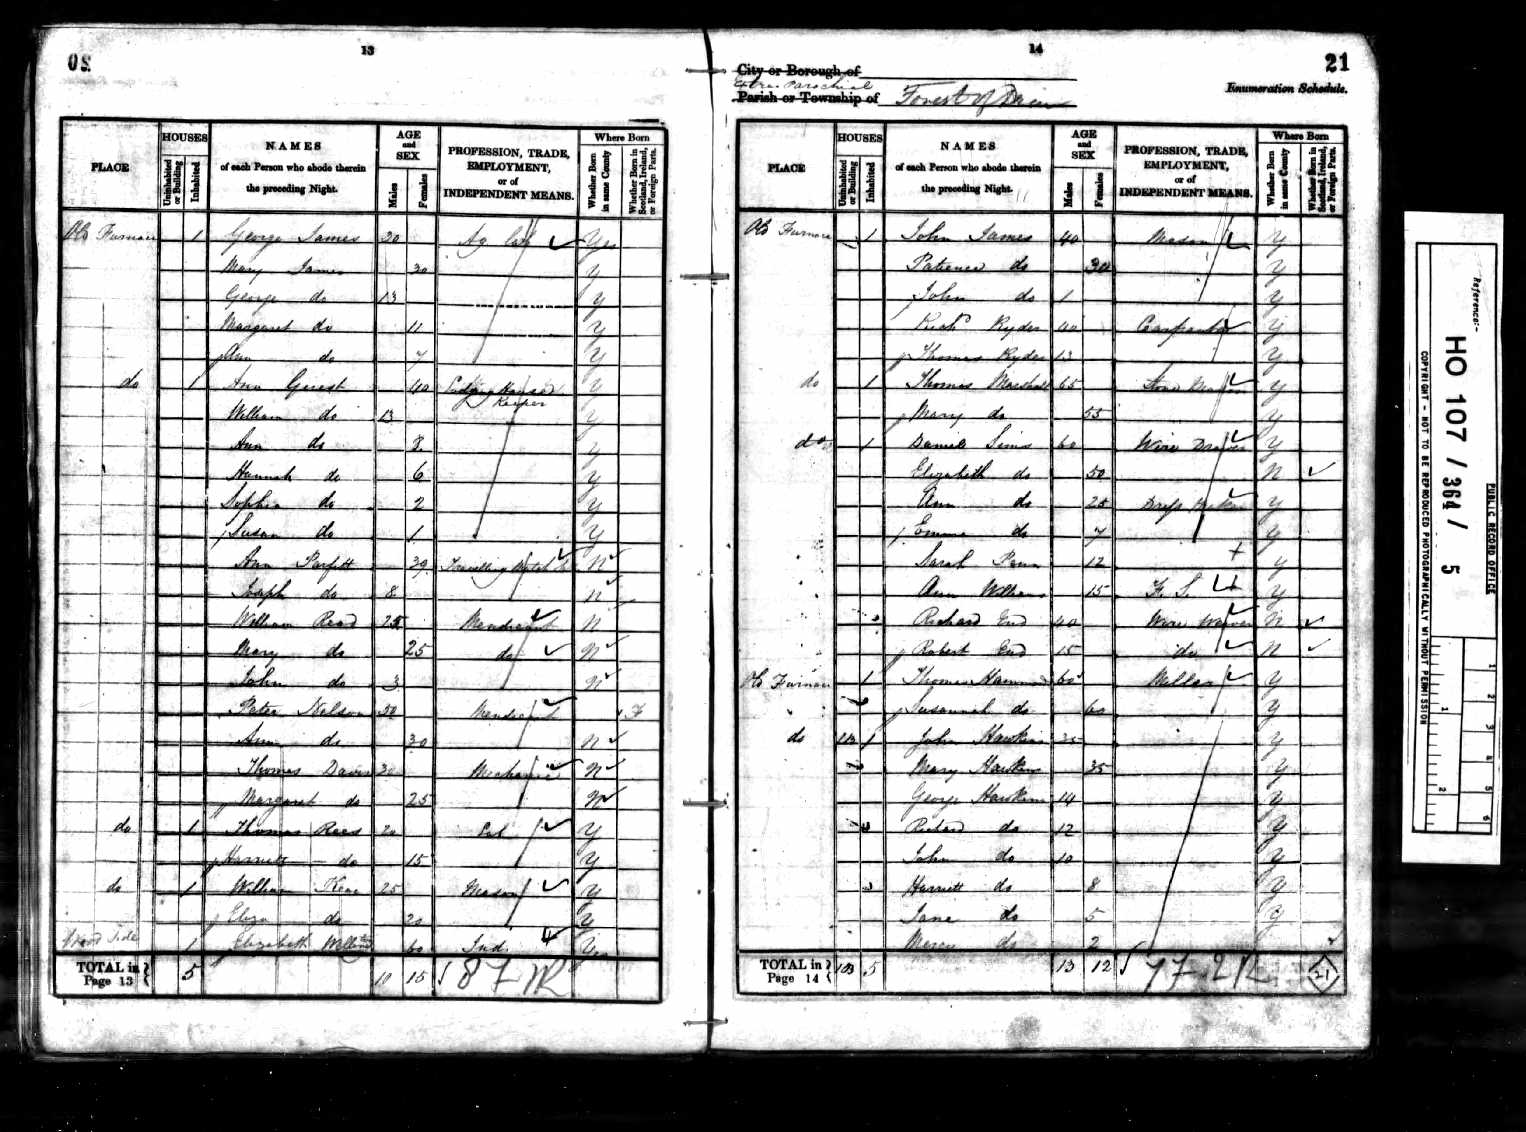 13
20
PLACE
HOUSES
Uninhabited or Building
Inhabited
NAMES
of each Person who abode therein
the preceding Night.
AGE and SEX
Males
Females
PROFESSION, TRADE,
EMPLOYMENT,
or of
INDEPENDENT MEANS.
Where Born
Whether Born in same County
Whether Born in Scotland, Ireland, or Foreign Parts.
Old Furnace 1 George James 30 Ag Lab Yes
Mary James 30 Y
George do 13 Y
Margaret do 11 Y
Ann do 7 Y
do 1 Ann Guest 40 Lodging House Keeper Y
William do 13 Y
Ann do 8 Y
Hannah do 6 Y
Sophia do 2 Y
Susan do 1 Y
Ann Parfitt 39 Travelling N
Joseph do 8 N
William Read 25 Mendicant N
Mary do 25 do N
John do 3 N
Peter Nelson 30 Mendicant F
Ann do 30 N
Thomas Davis 30 Mechanic N
Margaret do 25 N
do 1 Thomas Rees 20 Lab Y
Harriett do 15 Y
do 1 William 25 Mason Y
Eliza do 20 Y
1 Elizabeth 60 Ind. Yes
TOTAL in Page 13 5 10 15
14
21
City or Borough of
Extra Parochial
Parish or Township of Forest of Dean
Enumeration Schedule.
PLACE
HOUSES
Uninhabited or Building
Inhabited
NAMES
of each Person who abode therein
the preceding Night.
AGE and SEX
Males
Females
PROFESSION, TRADE,
EMPLOYMENT,
or of
INDEPENDENT MEANS.
Where Born
Whether Born in same County
Whether Born in Scotland, Ireland, or Foreign Parts.
Old Furnace 1 John James 40 Mason Y
Patience do 30 Y
John do 1 Y
Richd Ryder 40 Carpenter Y
Thomas Ryder 13 Y
do 1 Thomas Marshall 65 Stone Mason Y
Mary do 55 Y
do 1 Daniel Sims 60 Wire Drawer Y
Elizabeth do 50 N
Ann do 25 Dress Maker Y
Emma do 7 Y
Sarah Penn 12 Y
Ann Williams 15 F. S. Y
Richard End 40 Wire Weaver N
Robert End 15 do N
Old Furnace 1 Thomas Hammond 60 Miller Y
Susannah do 60 Y
do 1B 1 John Hawkins 35 Y
Mary Hawkins 35 Y
George Hawkins 14 Y
Richard do 12 Y
John do 10 Y
Harriett do 8 Y
Jane do 5 Y
Mercy do 2
TOTAL in Page 14 1B 5 13 12
21
Reference:-
HO 107 / 364 / 5
PUBLIC RECORD OFFICE
COPYRIGHT - NOT TO BE REPRODUCED PHOTOGRAPHICALLY WITHOUT PERMISSION
1
2
3
4
5
6
1
2